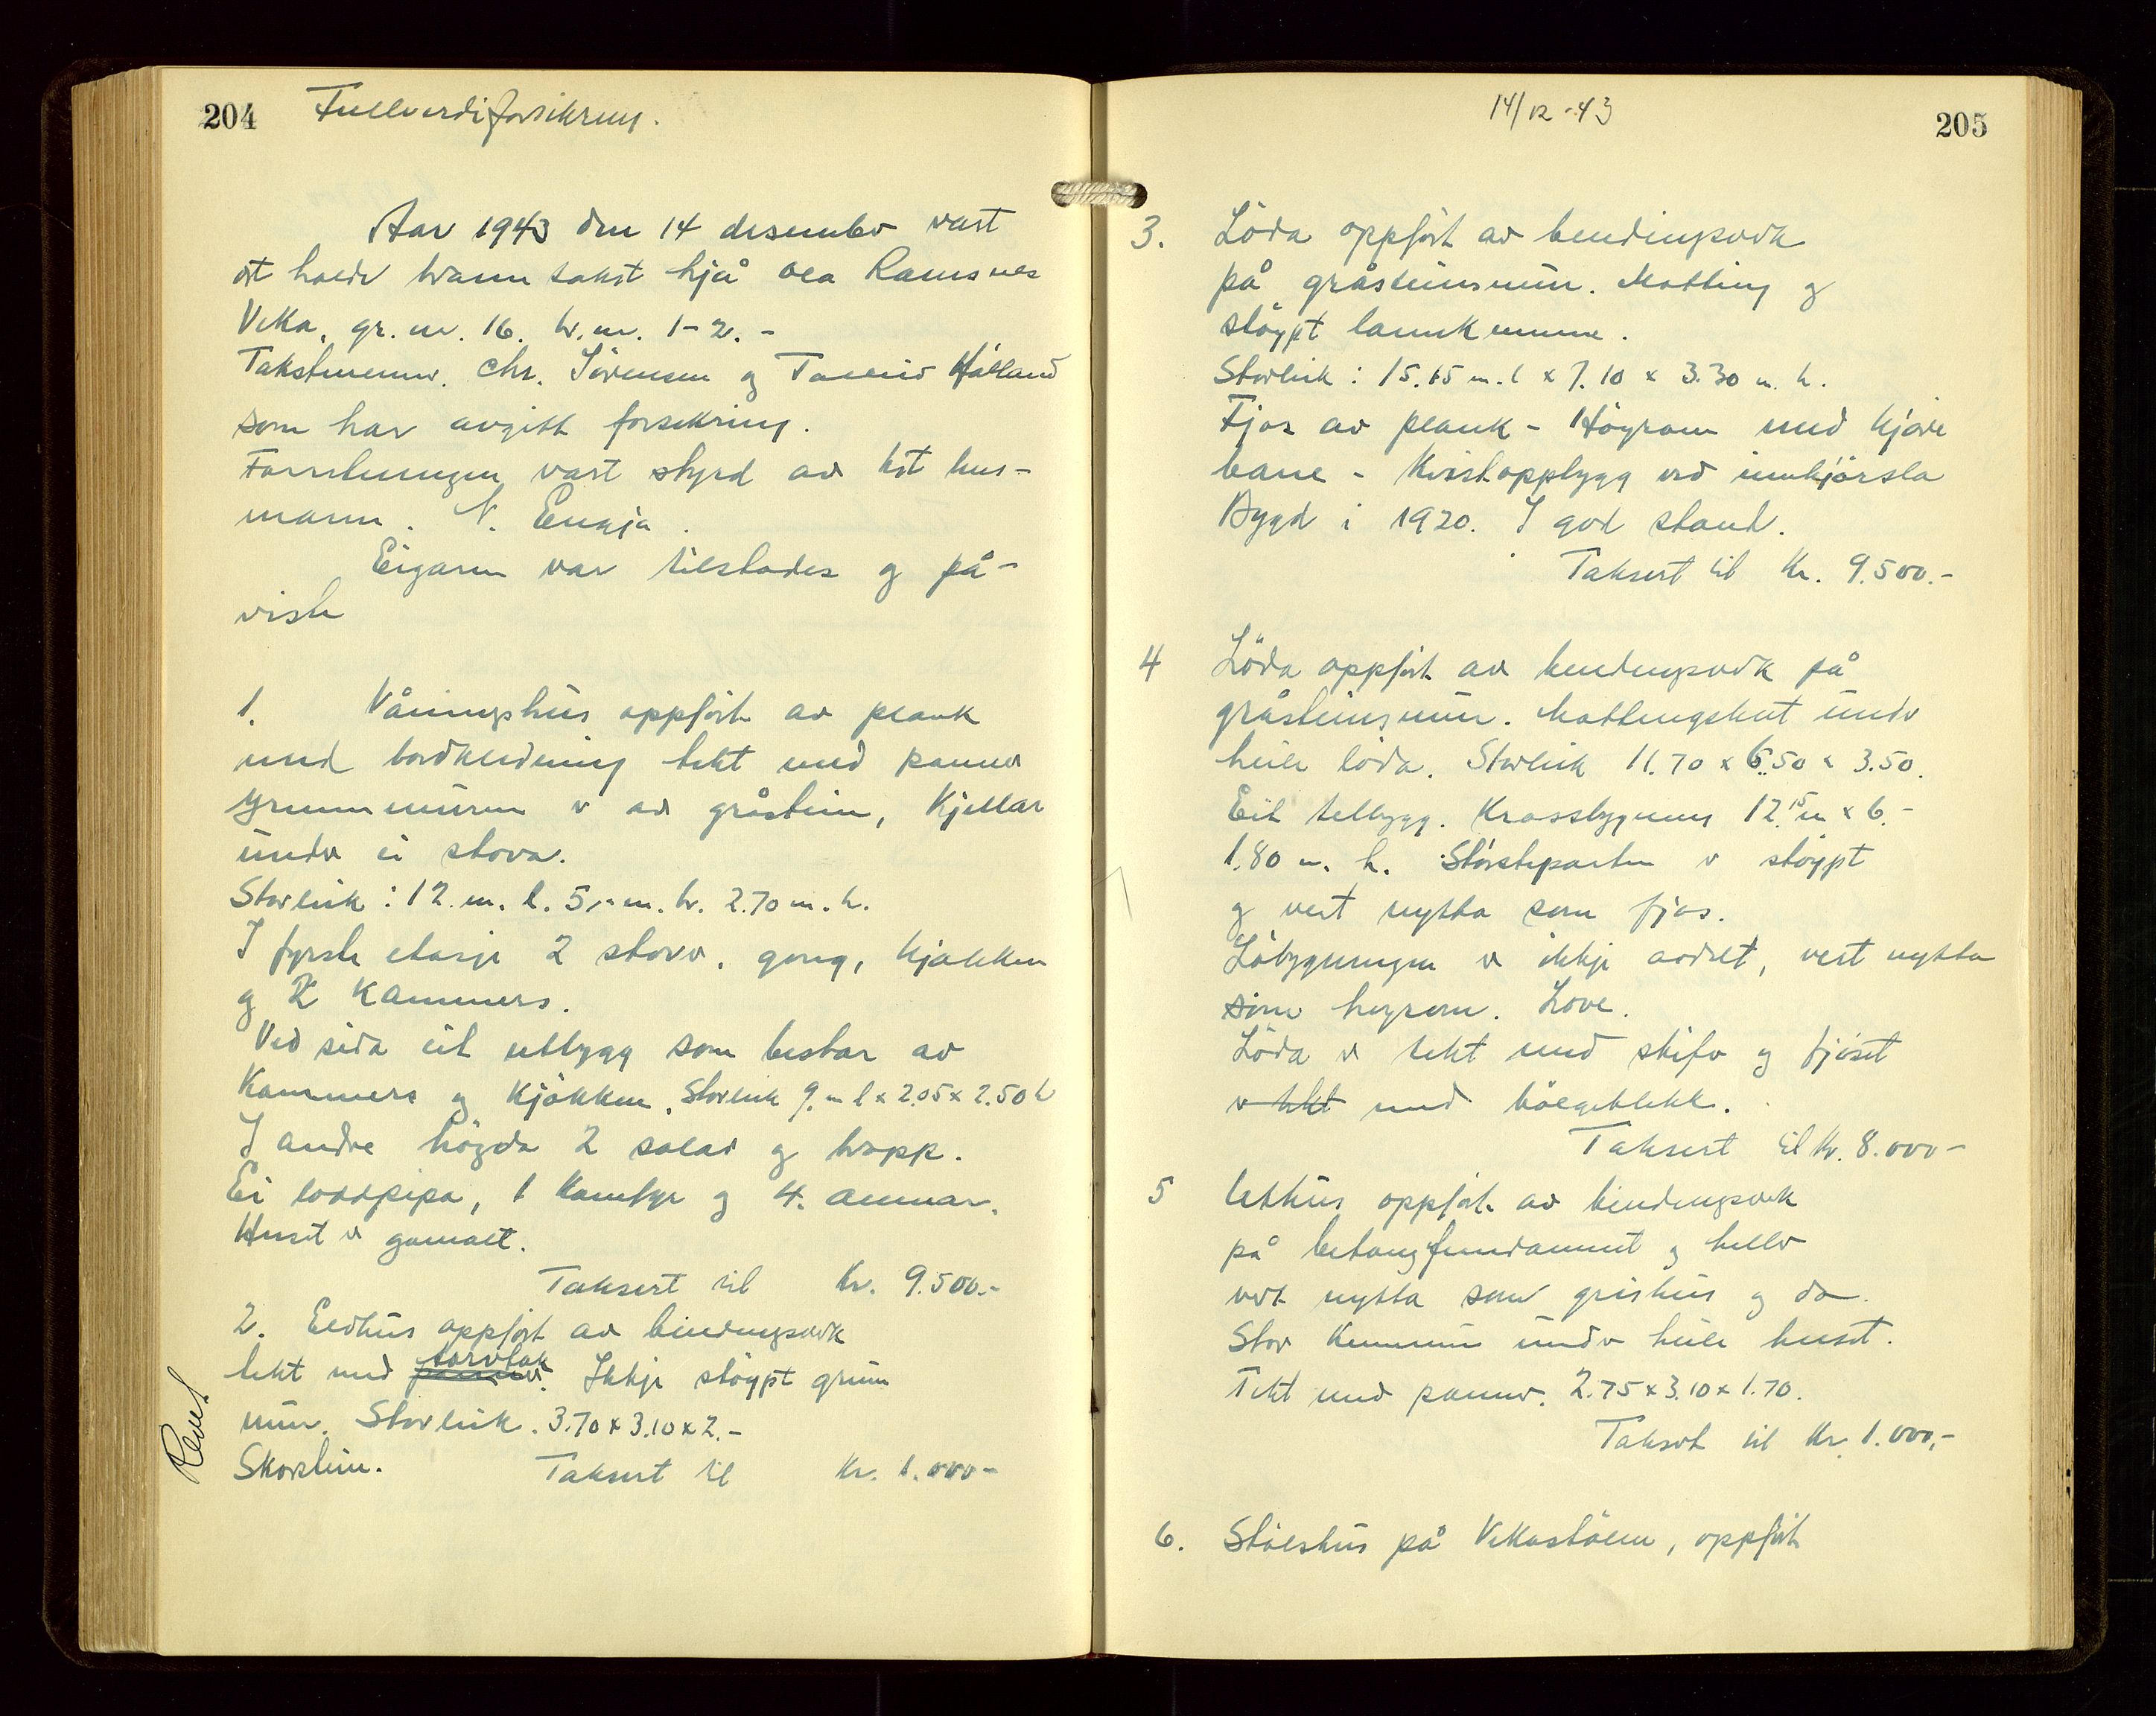 204 Fullverdiforsikring.
Aar 1943 den 14 desember vart
det halde brann takst hjå Ola Ramsnes
Vika, gr. nr. 16. br. nr. 1-2. -
Takstmenner. Chr. Sörensen og Tarald Hålland
som har avgitt forsikring.
Forretningen vart styrd av kst hus-
mann. N. Enaja.
Eigaren var tilstades og på-
viste
1. Våningshus oppfört av plank
med bordkledning tekt med panner
Grunnmuren er av gråstein, Kjellar
under ei stova.
Storleik: 12. m. l. 5,- m. br. 2.70 m. h.
I fyrste etasje 2 stover, gong, kjøkken
og 2 Kammers.
Ved sida eit utbygg som bestar av
Kammers og Kjökken. Storleik 9. m l x 2.05 x 2.50 h
I andre högda 2 salar og trapp.
Ei loddpipa, 1 Komfyr og 4. omnar.
Huset er gamalt.
Taksert til Kr. 9.500.-
2. Eldhus oppfört av bindingsverk
tekt med panner torvtak. Ikkje stöypt grunn
mur. Storleik. 3.70 x 3.10 x 2.-
Skorstein. Taksert til Kr. 1.000-
14/12-43 205
3. Löda oppfört av bendingsverk
på gråsteinsmur. Mötting og
stöypt landkumme.
Storleik: 15.65 m. l x 7.10 x 3.30 m. h.
Fjos av plank - Höyrom med kjöre
bane - Kvistoppbygg ved innkjörsla
Bygd i 1920. I god stand.
Taksert til Kr. 9.500.-
4 Löda oppfört av bendingsverk på
gråsteinsmur. under
heile löda. Storleik 11.70 x 6.50 x 3.50.
Eit telbygg. Krossbygning 12.15 m x 6.-
1.80 m. h. Störsteparten er stöypt
og vert nytta som fjos.
Löbygningen er ikkje delt, vert nytta
som høyrom. Love.
Löda er tekt med skifer og fjöset
er tekt med bölgeblekk.
Taksert til Kr. 8.000-
5 Uthus oppfört av bindingsverk
på betongfundament og heller
vert nytta som grishus og do.
Stor Kummur under heile huset.
Tekt med panner. 2.75 x 3.10 x 1.70.
Taksert til Kr. 1.000,-
6. Stölshus på Vikastölen, oppfört